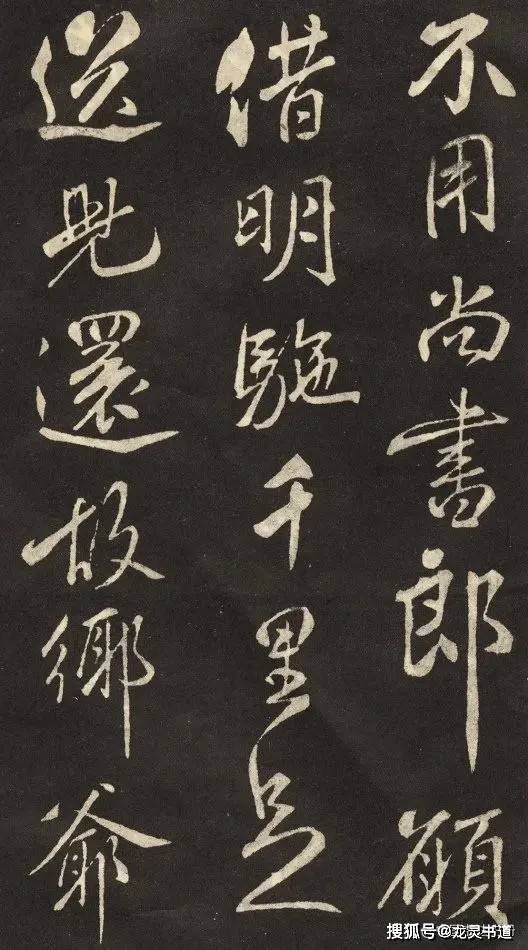 不用尚書郎願
借明駞千里足
送兒還故鄉爺
搜狐号@龙灵书道